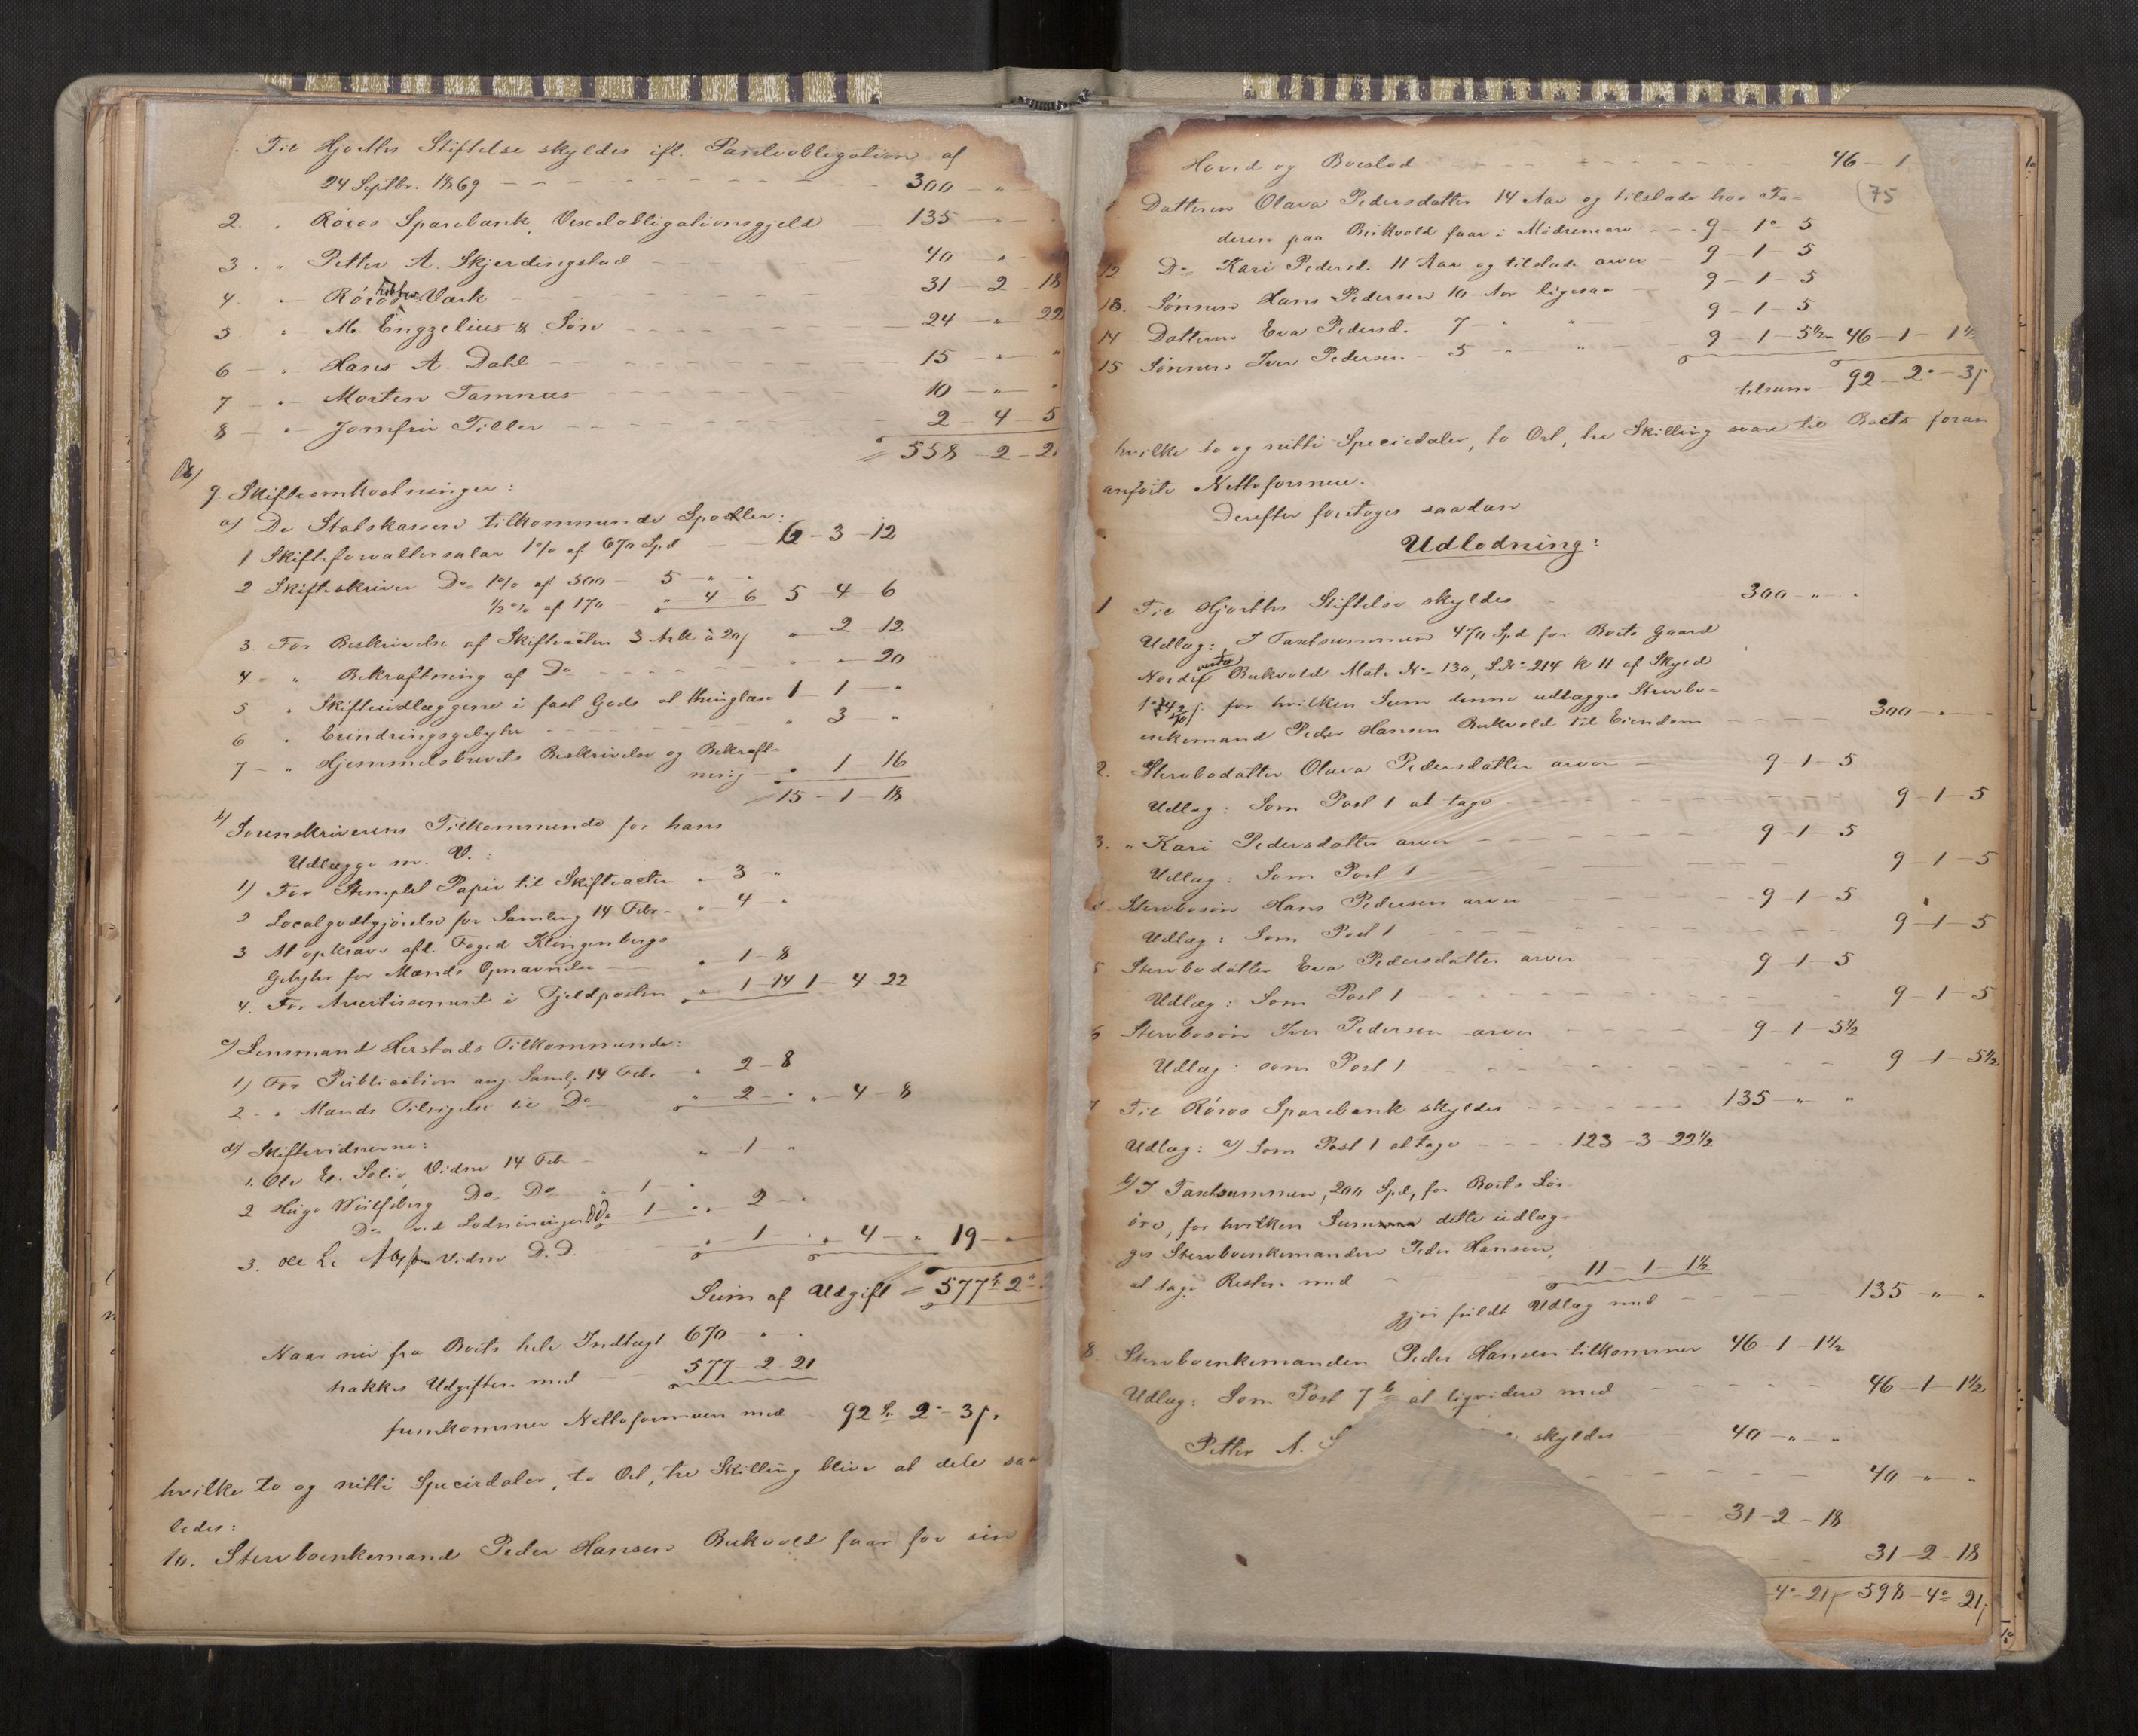 Til Hjorths Stiftelse skyldes ifl. Pandeobligation af
24 Septbr. 1869 — 300 - "
2. " Røros Sparebank, Vexelobligationsgjeld — 135 -
3. " Petter A. Skjerdingstad — 40 - "
4. " Røros Kobber Værk — 31 - 2 - 18
5 " M. Engzelius & Søn — 24 - " 22
6 - " Hans A. Dahl — 15 - " - "
7 - " Morten Tamnæs — 10 - " - "
8 - " Jomfru Tiller — 2 - 4 - 5
558 - 2 - 2
9. Skifteomkostninger:
a) De Statskassen tilkommende Sportler:
1 Skifteforvaltersalar 1% af 670 Spd — 6 - 3 - 12
2 Skifteskriver Do 1% af 500 - 5 - " "
½% af 170 - " 4 - 6 5 - 4 - 6
3. For Beskrivelse af Skifteacten 3 Ark à 20 s " 2 - 12
4. - " Bekræftning af Do — " - " - 20
5 " Skifteudlæggene i fast Gods at thinglæse 1 - 1 - "
6 " Erindringsgebyhr — " 3 - "
7 - " Hjemmelsbrevets Beskrivelse og Bekræft-
ning — " 1 - 16
15 - 1 - 18
b) Sorenskriverens Tilkommende for hans
Udlægge m. V.:
1) For Stemplet Papir til Skifteacten " 3 - "
2 Localgodtgjørelse for Samling 14 Febr - " 4 - "
3 At opkræve afd. Foged Klingenbergs
Gebyhr for Mænds Opnævnelse — " 1 - 8
4. For Avertissement i Fjeldposten " 1 - 14 1 - 4 - 22
c) Lensmand Herstads Tilkommende:
1) For Publication ang. Samlg. 14 Febr " 2 - 8
2 - " Mænds Tilsigelse til Do " 2 - " " 4 - 8
d) Skiftevidnerne:
1. Ole E. Solli, Vidne 14 Febr - " 1 - "
2 Do Do " 1 - "
Do ved Lodningen DD. 1 - " " 2 - "
3. Ole Vidne D.D. " 1 - " " 4 - " 19 - "
Sum af Udgift 577 2
Naar nu fra Boets hele Indtægt 670 - " - "
trækkes Udgiften med — 577 - 2 - 21
fremkommer Nettoformuen med - 92 Sp. 2 - 3 s.
hvilke to og nitti Speciedaler, to Ort, tre Skilling bliver at dele saa
ledes:
10. Stervboenkemand Peder Hansen Bukvold faar for sin
Hoved og Boeslod — 46 - 1
75
Datteren Olava Pedersdatter 14 Aar og tilstede hos Fa-
deren paa Bukvold faar i Mødrenearv — 9 - 1 - 5
12 Do Kari Pedersd. 11 Aar og tilstede arver - 9 - 1 - 5
13. Sønnen Hans Pedersen 10 Aar ligesaa — 9 - 1 - 5
14 Datteren Eva Pedersd. 7 - " " — 9 - 1 - 5
15 Sønnen Iver Pedersen - 5 " " — 9 - 1 - 5½ 46 - 1 - 1½
tilsam - 92 - 2 - 3 s
hvilke to og nitti Speciedaler, to Ort, tre Skilling svare til Boets foran
anførte Nettoformue.
Derefter foretoges saadan
Udlodning:
1 Til Hjorths Stiftelse skyldes — 300 - " - "
Udlæg: I Taxtsummen 470 Spd for Boets Gaard
Nordre vestre Bukvold Mat. No 130, L. No 214 k 11 af Skyld
for hvilken Sum denne udlægges Stervbo-
enkemand Peder Hansen Bukvold til Eiendom — 300 - " -
2. Stervbodatter Olava Pedersdatter arver — 9 - 1 - 5
Udlæg: Som Post 1 at tage — 9 - 1 - 5
3. " Kari Pedersdatter arver — 9 - 1 - 5
Udlæg: Som Post 1 — 9 - 1 - 5
4. Stervbosøn Hans Pedersen arver — 9 - 1 - 5
Udlæg: Som Post 1 — 9 - 1 - 5
5 Stervbodatter Eva Pedersdatter arver — 9 - 1 - 5
Udlæg: Som Post 1 — 9 - 1 - 5
6 Stervbosøn Iver Pedersen arver — 9 - 1 - 5½
Udlæg: som Post 1 — 9 - 1 - 5½
7 Til Røros Sparebank skyldes — 135 - " "
Udlæg: a) Som Post 1 at tage — 123 - 3 - 22½
b) I Taxtsummen, 200 Spd, for Boets Løs-
øre, for hvilken Sum dette udlæg-
ges Stervboenkemanden Peder Hansen,
at tage Resten med — 11 - 1 - 1½
gjør fuldt Udlæg med — 135 - " "
8. Stervboenkemanden Peder Hansen tilkommer 46 - 1 - 1½
Udlæg: Som Post 7 b at liqvidere med — 46 - 1 - 1½
Petter A. S skyldes — 40 - " - "
40 - " - "
31 - 2 - 18
31 - 2 - 18
4 - 21 s 598 - 4 - 21 s